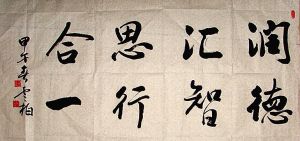 润德
汇智
思行
合一
甲午春云柏